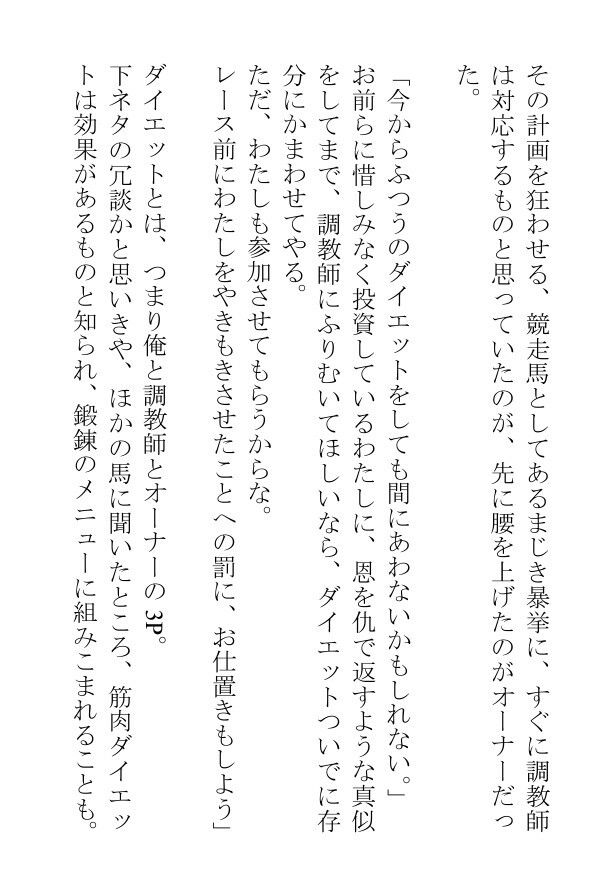 その計画を狂わせる、競走馬としてあるまじき暴挙に、すぐに調教師
は対応するものと思っていたのが、先に腰を上げたのがオーナーだっ
た。
「今からふつうのダイエットをしても間にあわないかもしれない。」
お前らに惜しみなく投資しているわたしに、恩を仇で返すような真似
をしてまで、調教師にふりむいてほしいなら、ダイエットついでに存
分にかまわせてやる。
ただ、わたしも参加させてもらうからな。
レース前にわたしをやきもきさせたことへの罰に、お仕置きもしよう」
ダイエットとは、つまり俺と調教師とオーナーの3P。
下ネタの冗談かと思いきや、ほかの馬に聞いたところ、筋肉ダイエッ
トは効果があるものと知られ、鍛錬のメニューに組みこまれることも。